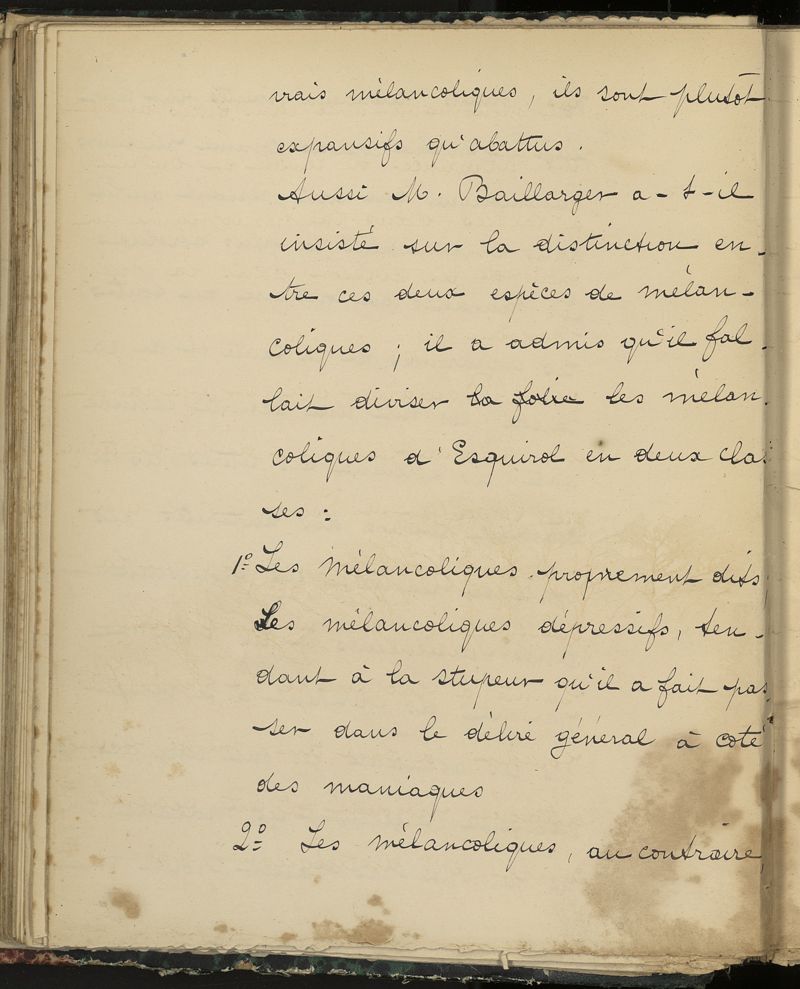 vrais mélancoliques, ils sont plutôt
expansifs qu'abattus.
Aussi M. Baillarger a-t-il
insisté sur la distinction en-
tre ces deux espèces de mélan-
coliques; il a admis qu'il fal-
lait diviser la folie les mélan-
coliques d'Esquirol en deux clas-
ses :
1º Les mélancoliques proprement dits,
Les mélancoliques dépressifs, ten-
dant à la stupeur qu'il a fait pas-
ser dans le délire général à coté
des maniaques
2º Les mélancoliques, au contraire,